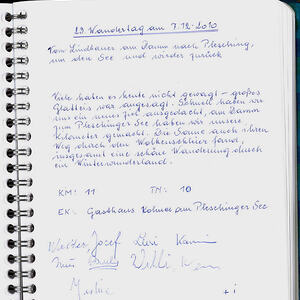 29. Wandertag am 7.12.2010
Vom Lindbauer am Damm nach Plesching,
um den See und wieder zurück
Viele haben es heute nicht gewagt - großes
Glatteis war angesagt. Schnell haben wir
uns ein neues Ziel ausgedacht, am Damm
zum Pleschinger See haben wir unsere
Kilometer gemacht. Die Sonne auch ihren
Weg durch den Wolkenschleier fand,
insgesamt eine schöne Wanderung durch
ein Winterwunderland.
KM: 11 TN: 10
EK: Gasthaus am Pleschinger See
Josef
Willi